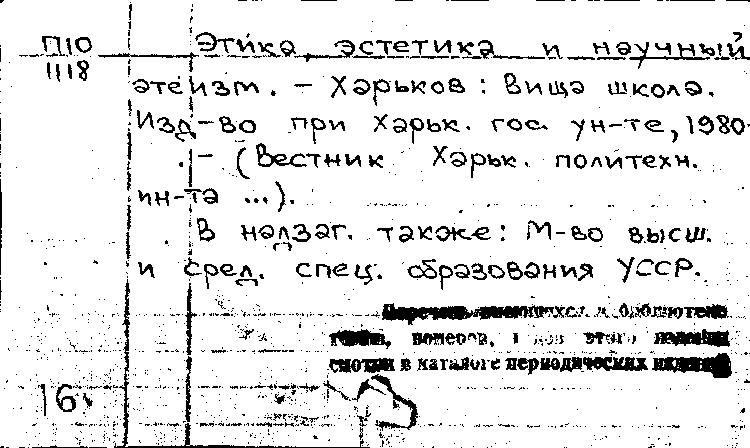 П10
1118
Этика, эстетика и научный
атеизм. – Харьков: Вища школа.
Изд-во при Харьк. гос. ун-те, 1980-
. – (Вестник Харьк. политехн.
ин-та ...).
В надзаг. также: М-во высш.
и сред. спец. образования УССР.
Перечень имеющихся в библиотеке
томов, номеров, этого издания
смотри в каталоге периодических изданий
16